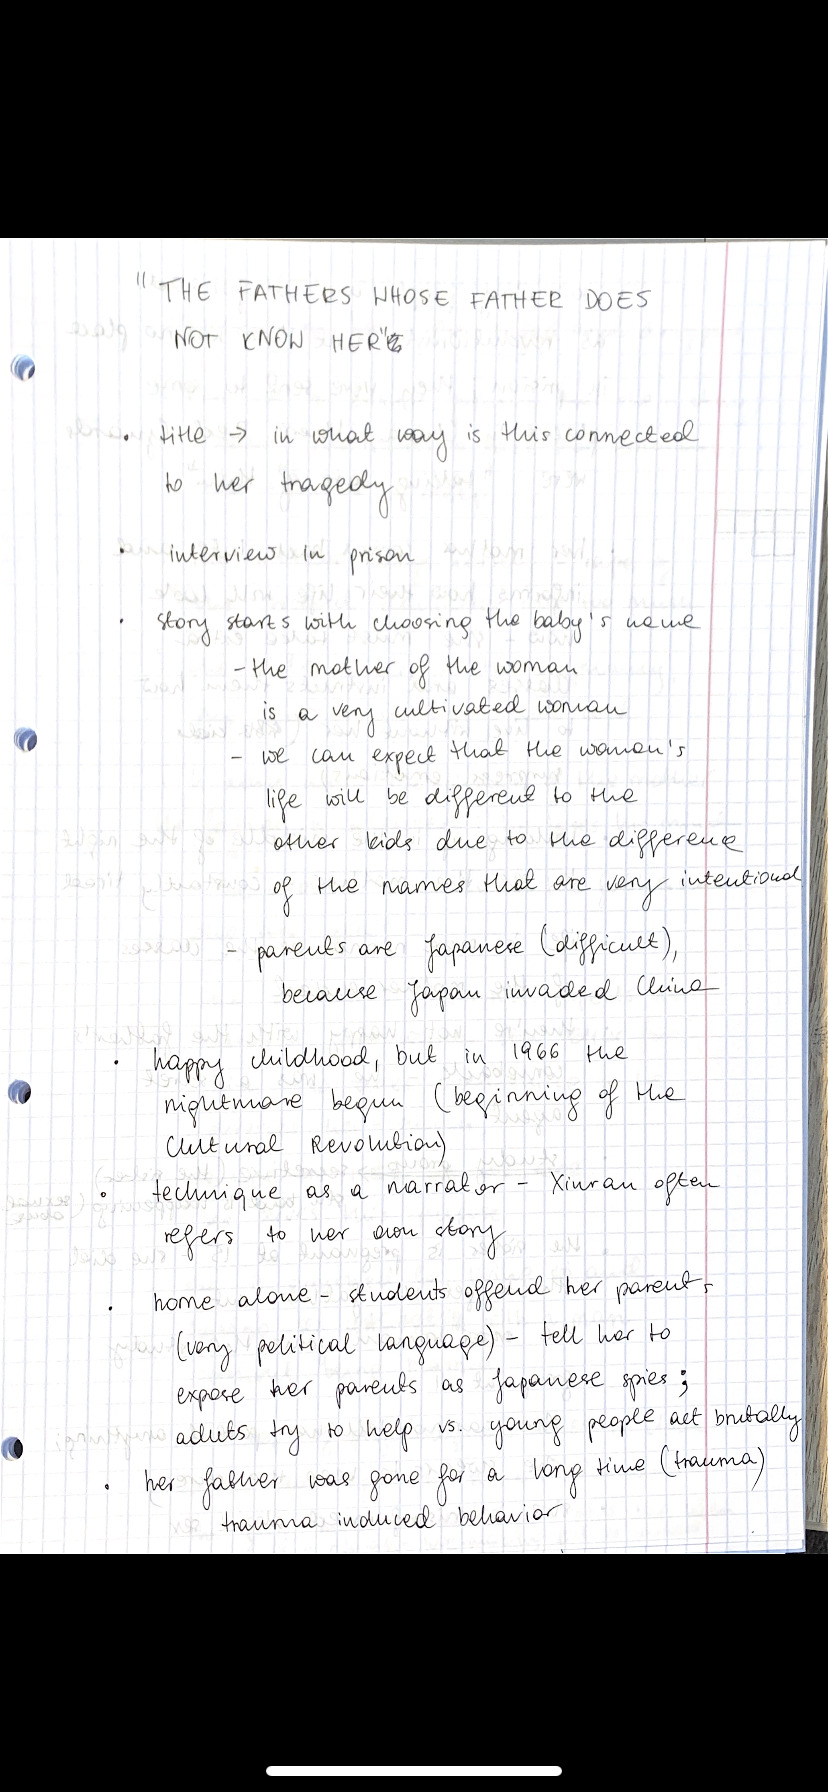 "THE FATHERS WHOSE FATHER DOES
NOT KNOW HER"
• title → in what way is this connected
to her tragedy
• interview in prison
• story starts with choosing the baby's name
- the mother of the woman
is a very cultivated woman
- we can expect that the woman's
life will be different to the
other kids due to the difference
of the names that are very intentional
- parents are Japanese (difficult),
because Japan invaded China
• happy childhood, but in 1966 the
nightmare begun (beginning of the
Cultural Revolution)
• technique as a narrator - Xinran often
refers to her own story
• home alone - students offend her parents
(very political language) - tell her to
expose her parents as Japanese spies;
aduts try to help vs. young people act brutally
• her father was gone for a long time (trauma)
trauma induced behavior